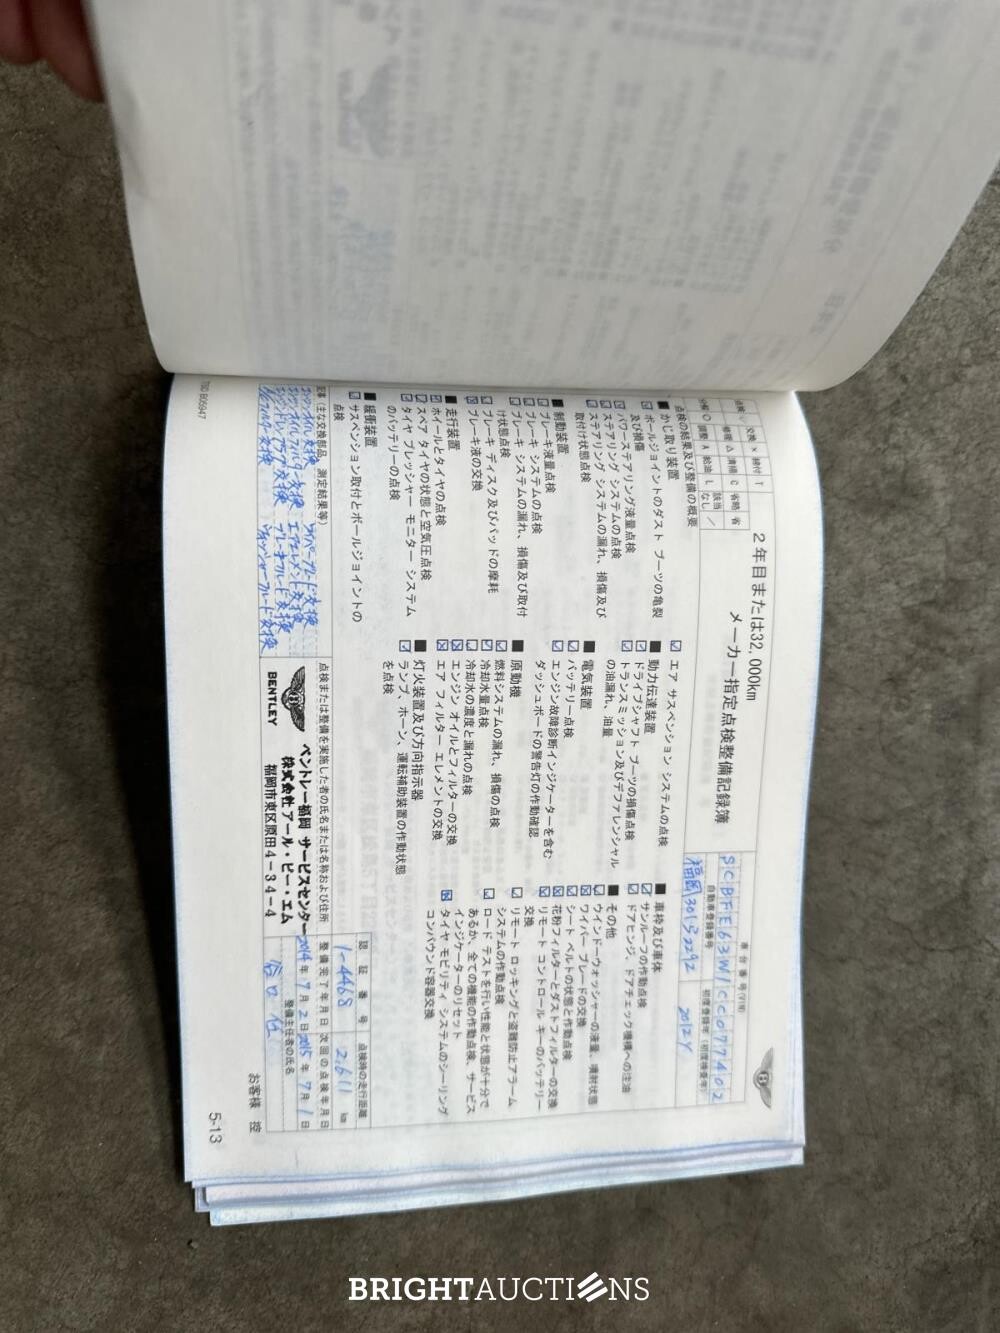 2年目または32,000km
メーカー指定点検整備記録簿
車台番号(VIN)
SCBFE63W1CC077402
自動車登録番号
初度登録年(初度検査年)
福岡301
2012Y
点検の結果及び整備の概要
■かじ取り装置
ボールジョイントのダスト ブーツの亀裂
及び損傷
パワーステアリング液量点検
ステアリング システムの点検
ステアリング システムの漏れ、損傷及び
取付け状態点検
■制動装置
ブレーキ液量点検
ブレーキ システムの点検
ブレーキ システムの漏れ、損傷及び取付
け状態点検
ブレーキ ディスク及びパッドの摩耗
ブレーキ液の交換
■走行装置
ホイールとタイヤの点検
スペア タイヤの状態と空気圧点検
タイヤ プレッシャー モニター システム
のバッテリーの点検
■緩衝装置
サスペンション取付とボールジョイントの
点検
エア サスペンション システムの点検
■動力伝達装置
ドライブシャフト ブーツの損傷点検
トランスミッション及びデファレンシャル
の油漏れ、油量
■電気装置
バッテリー点検
エンジン故障診断インジケーターを含む
ダッシュボードの警告灯の作動確認
■原動機
燃料システムの漏れ、損傷の点検
冷却水量点検
冷却水の濃度と漏れの点検
エンジン オイルとフィルターの交換
エア フィルター エレメントの交換
■灯火装置及び方向指示器
ランプ、ホーン、運転補助装置の作動状態
を点検
■車枠及び車体
サンルーフの作動点検
ドアヒンジ、ドアチェック機構への注油
■その他
ウインドーウォッシャーの液量、噴射状態
ワイパー ブレードの交換
シート ベルトの状態と作動点検
花粉フィルターとダストフィルターの交換
リモート コントロール キーのバッテリー
交換
リモート ロッキングと盗難防止アラーム
システムの作動点検
ロード テストを行い性能と状態が十分で
あるか、全ての機能の作動点検、サービス
インジケーターのリセット
タイヤ モビリティ システムのシーリング
コンパウンド容器交換
記事(主な交換部品、測定結果等)
エンジンオイル交換 ワイパーブレード交換
エアエレメント交換
点検または整備を実施した者の氏名または名称および住所
BENTLEY
ベントレー福岡 サービスセンター
株式会社アール・ビー・エム
福岡市東区原田4-34-4
認証番号
1-4468
点検時の走行距離
2,611 km
整備完了年月日
次回の点検年月日
2014年7月2日
2015年7月1日
整備主任者の氏名
お客様 控
5-13
TSD B05947
BRIGHTAUCTIONS